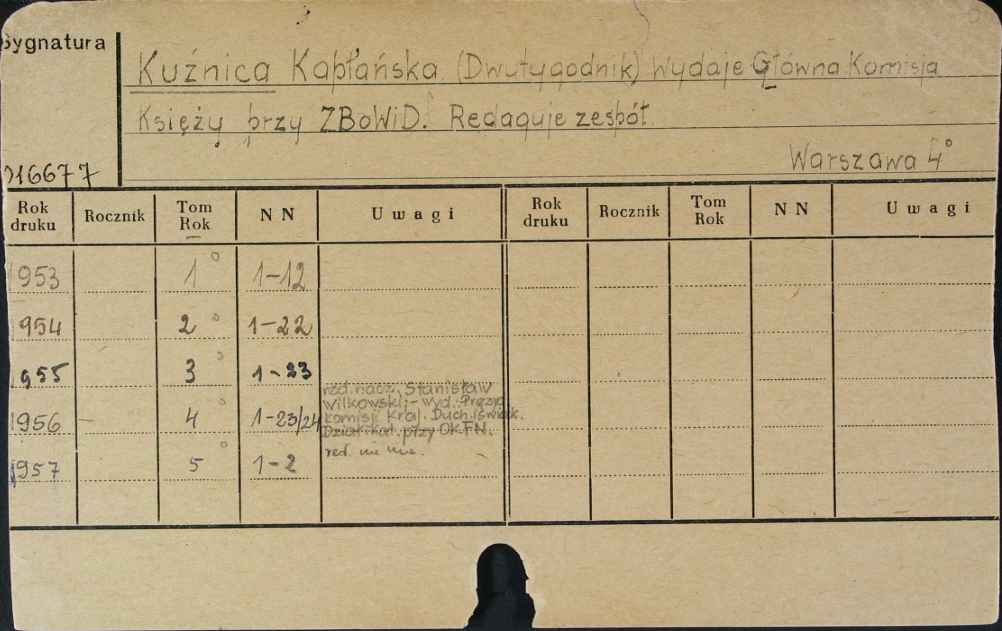 Sygnatura
Kuźnica Kapłańska (Dwutygodnik) Wydaje Główna Komisja
Księży przy ZBoWiD. Redaguje zespół.
Warszawa 4°
016677
Rok druku Rocznik Tom Rok NN Uwagi Rok druku Rocznik Tom Rok NN Uwagi
1953 1° 1-12
1954 2° 1-22
1955 3° 1-23
red. nacz. Stanisław
Wilkowski; - wyd. Prezyd.
1956 4° 1-23/24 Komisji Kraj. Duch. i świeck.
Dział. kat. przy OKFN.
red. nie
1957 5° 1-2